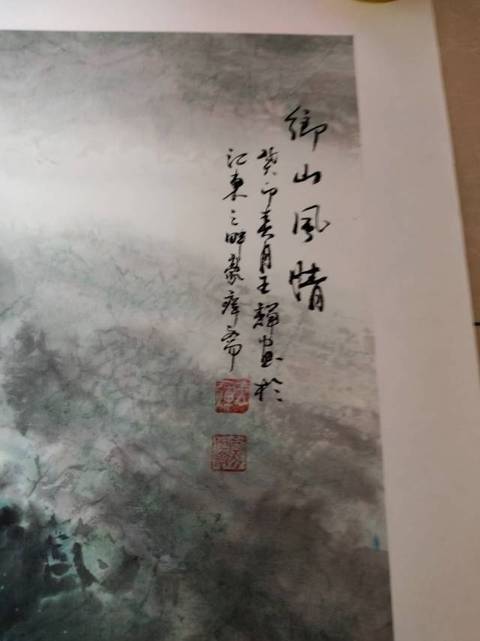 鄉山風情
癸卯春月王輝画於
江東之畔斋